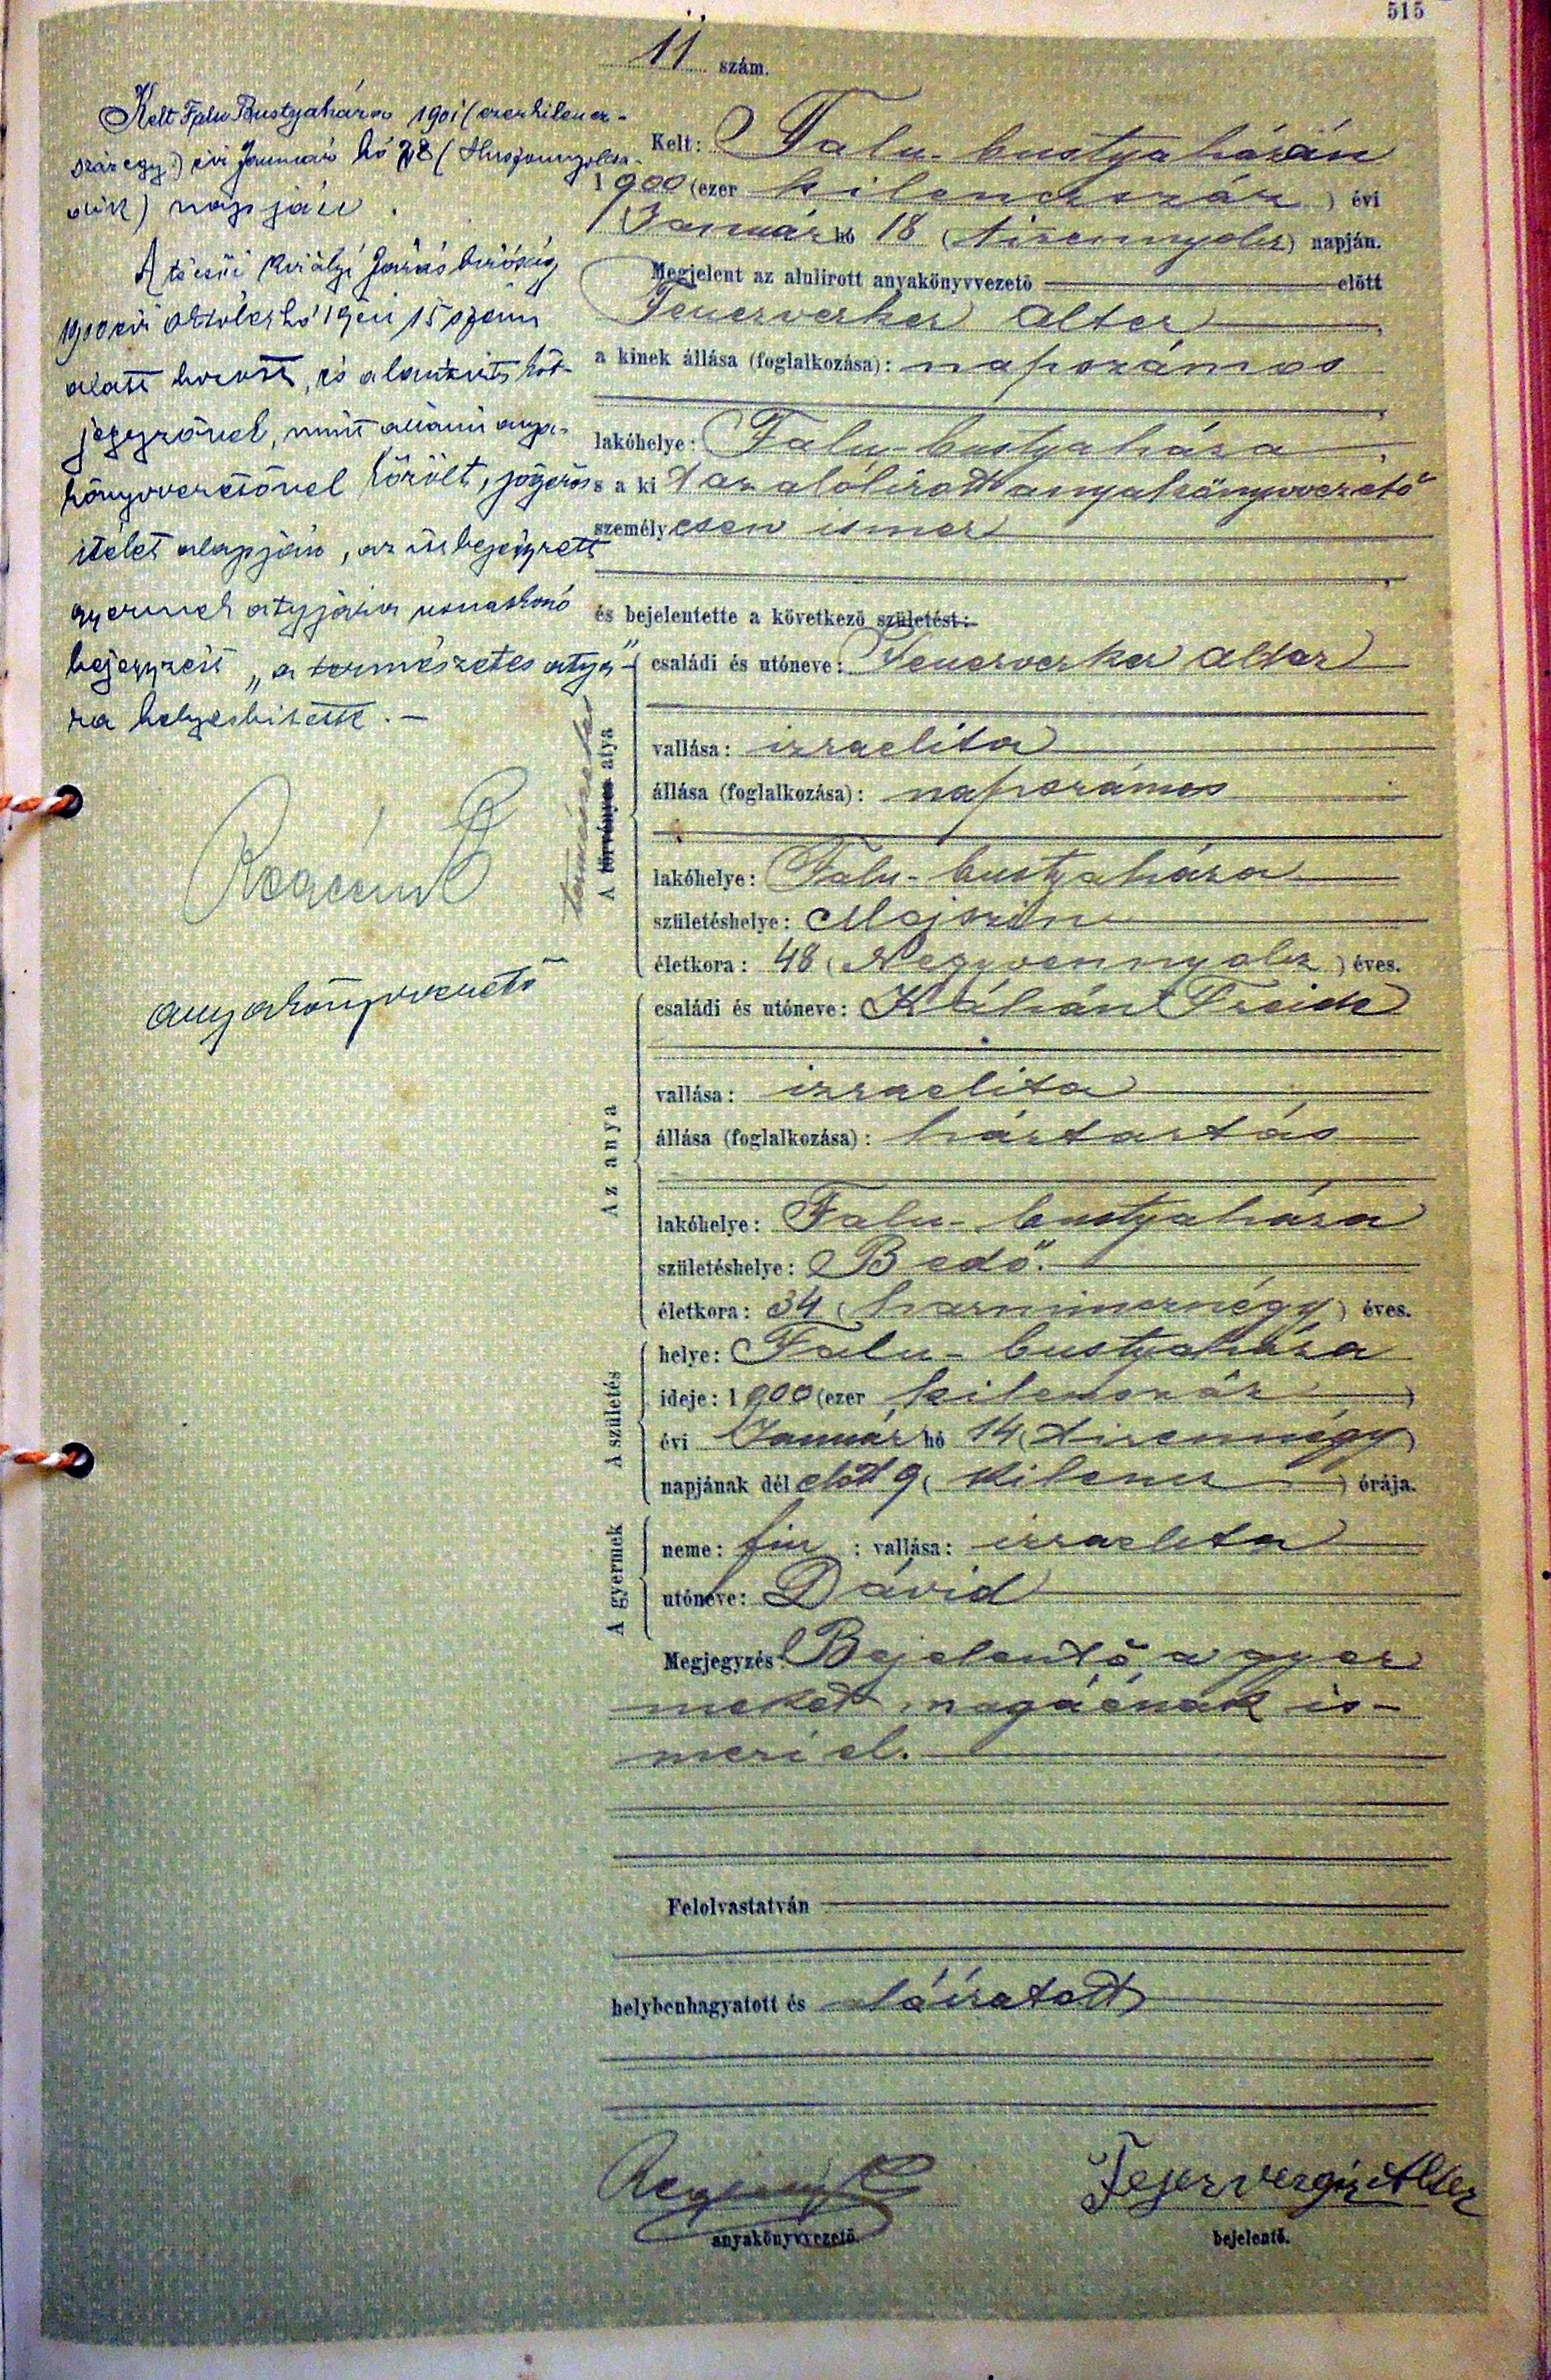 515
11 szám.
Kelt Falu Bustyaházán 1901 (ezerkilencz-
százegy) évi Január hó 28 (Huszonnyolcza-
dik) napján.
A técsői királyi Járásbíróság
1900 évi Október hó 19én 15 szám
alatt hozott, és alantirt kör-
jegyzővel, mint állami anya-
könyvvezetővel közölt, jogerős
itélet alapján, az itt bejegyzett
gyermek atyjára vonatkozó
bejegyzést „a természetes atya"-
ra helyesbitette. —
anyakönyvvezető
Kelt: Falu-bustyaházán
1900 (ezer kilenczszáz) évi
Január hó 18 (tizennyolcz) napján.
Megjelent az alulirott anyakönyvvezető előtt
Feuerverker Alter,
a kinek állása (foglalkozása): napszámos
lakóhelye: Falu-bustyaháza,
s a kit az alólirott anyakönyvvezető
személyesen ismer
és bejelentette a következő születést:
A törvényes atya
természetes
családi és utóneve: Feuerverker Alter
vallása: izraelita
állása (foglalkozása): napszámos
lakóhelye: Falu-bustyaháza
születéshelye: Majszin
életkora: 48 (Negyvennyolcz) éves.
Az anya
családi és utóneve: Káhán Freide
vallása: izraelita
állása (foglalkozása): háztartás
lakóhelye: Falu-bustyaháza
születéshelye: Bedő.
életkora: 34 (harmincznégy) éves.
A születés
helye: Falu-bustyaháza
ideje: 1900 (ezer kilenczszáz)
évi Január hó 14 (tizennégy)
napjának dél előtt 9 (kilencz) órája.
A gyermek
neme: fiu : vallása: izraelita
utóneve: Dávid
Megjegyzés: Bejelentő a gyer
meket magáénak is-
meri el.
Felolvastatván
helybenhagyatott és aláíratott
anyakönyvvezető.
Fejerverger Alter
bejelentő.